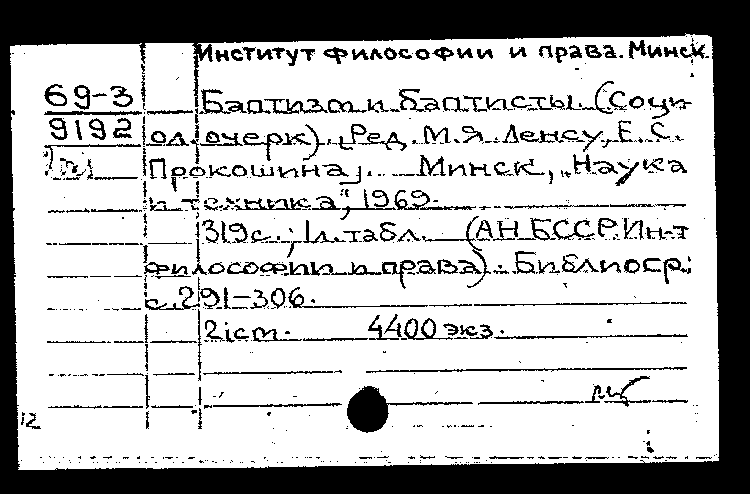 Институт философии и права. Минск.
69-3 Баптизм и баптисты. (Соци-
9192 ол. очерк). [Ред. М.Я. Ленсу, Е.С.
Прокошина]. Минск, "Наука
и техника", 1969.
319с.; 1л. табл. (АН БССР. Ин-т
философии и права). Библиогр.:
с.291-306.
2іст. 4400 экз.
12